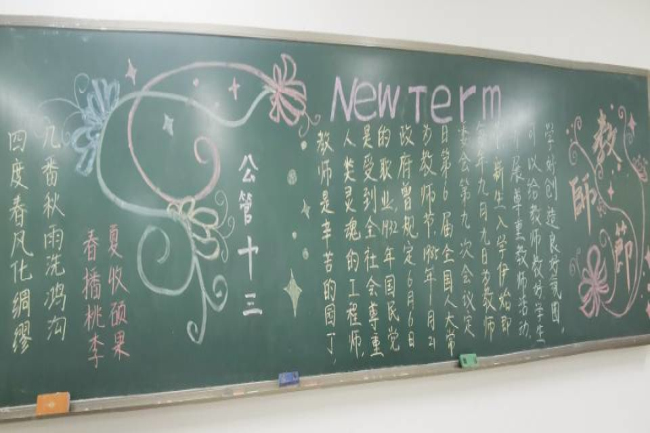 NEW TERM
四度春风化绸缪
几番秋雨洗鸿沟
春播桃李
夏收硕果
公管十三
教师是辛苦的园丁，
人类灵魂的工程师，
是受到全社会尊重
的职业.1932年国民党
政府曾规定6月6日
为教师节.1985年1月21
日第6届全国人大常
委会第九次会议定
年九月九日为教师
新生入学伊始即
开展尊重教师活动,
可以给教师教好学生
学好创造良好氛围,
教師節